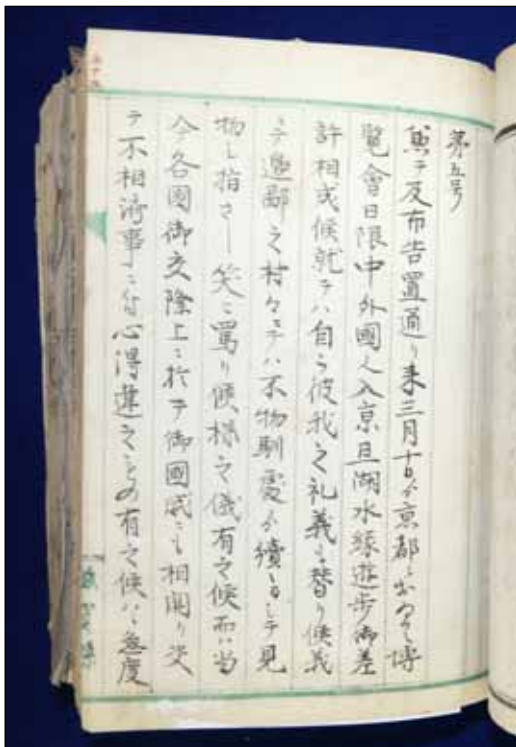 第五号
兼テ及布告置通り来三月十日ゟ京都ニおゐて博
覧會日限中外國人入京且湖水縁遊歩御差
許相成候就テハ自ラ彼我之礼義も替り候義
ニテ邊鄙之村々ニテハ不物馴處ゟ續ニテ見
物シ指サシ笑ヒ罵り候様之儀有之候而ハ当
今各國御交際上ニ於テ御國威ニも相関り決
テ不相済事ニ付心得違之もの有之候ハヽ急度